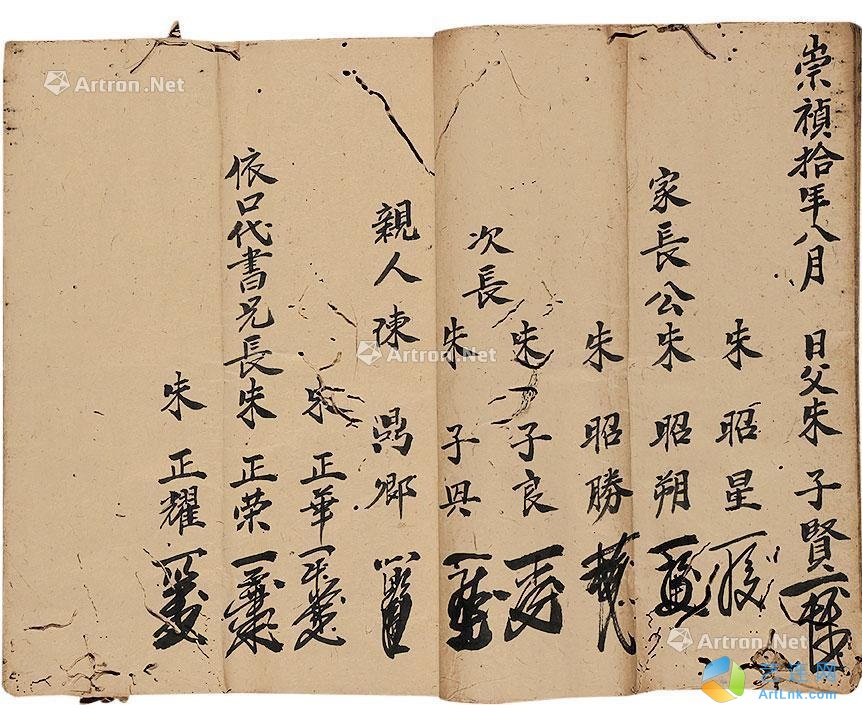 崇禎拾年八月 日父朱子賢
朱昭星
家長公朱昭朔
朱昭勝
朱子良
次長
朱子興
親人陳 鼎鄉
朱正華
依口代書兄長朱正荣
朱正耀
Artron.Net
Artron.Net
Artron.Net
ArtLnk.com